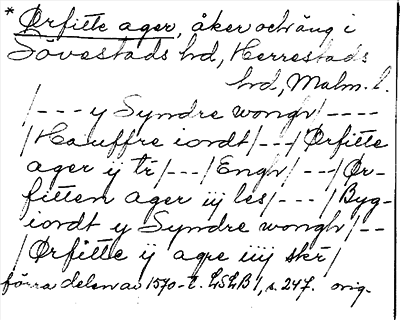 * Ørfitte ager, åker och äng i
Sövestads hd, Herrestads
hd, Malm. l.
/--- y Syndre wongh/----
/Hauffre iordt/---/Ørfitte
ager ij tr/---/Engh/---/Ør-
fitten ager iij les/---/Byg-
iordt y Syndre wongh/--
/Ørfitte ij agre iiij skr/
förra delen av 1570-t. LSLB 1, s. 247. orig.